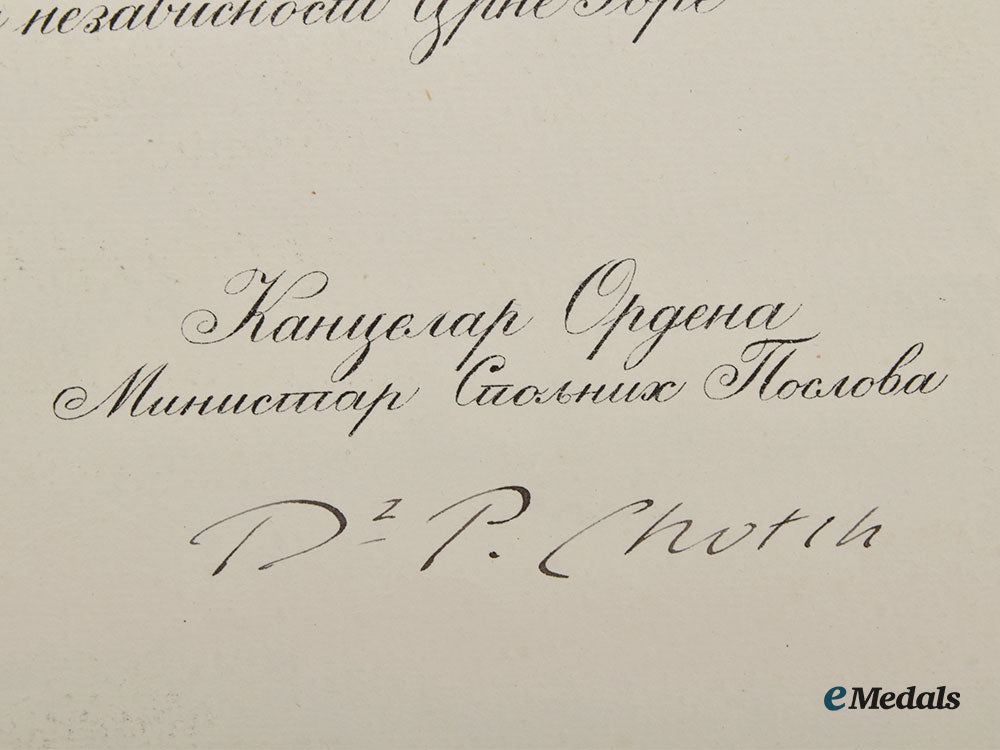 независности Црне Горе
Канцелар Ордена
Министар Спољних Послова
Dr P. Chotch
eMedals